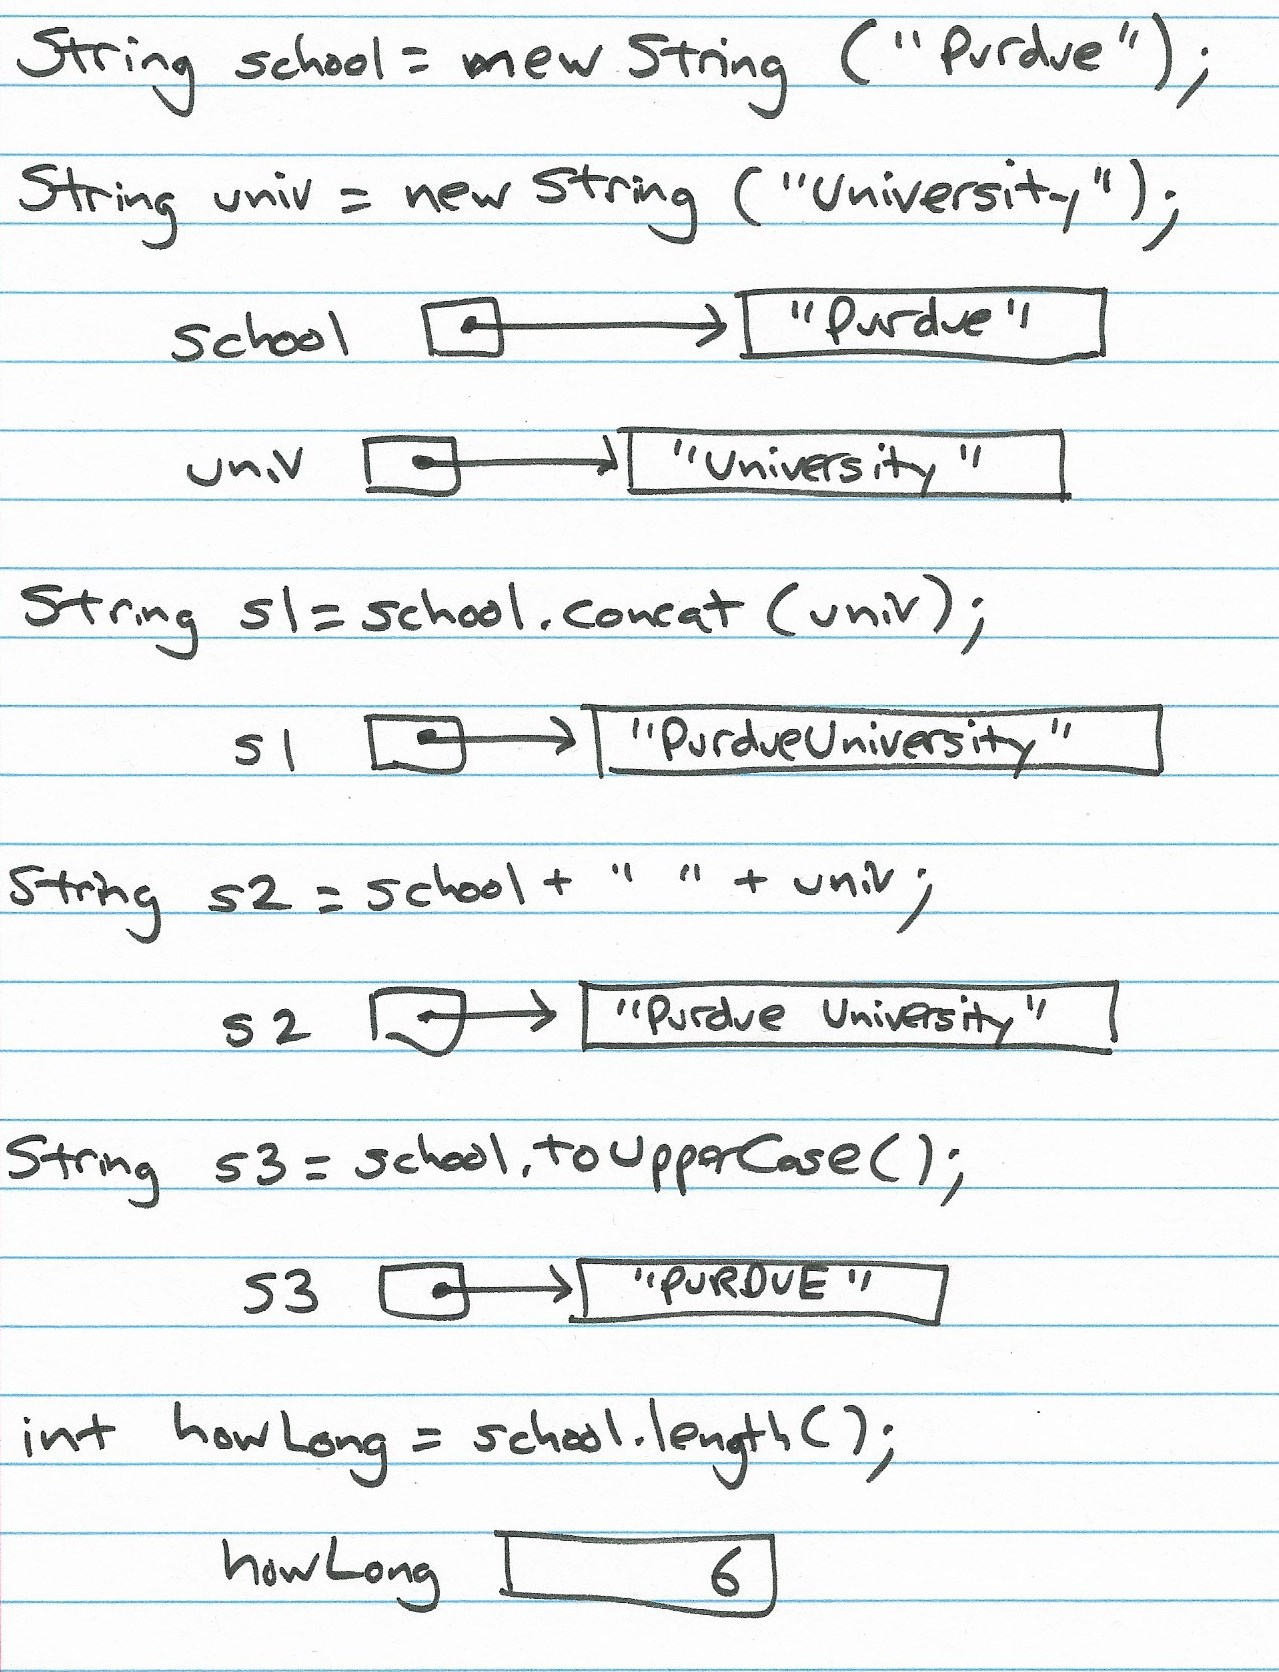 String school = new String ("Purdue");
String univ = new String ("University");
school "Purdue"
univ "University"
String s1 = school.concat (univ);
s1 "PurdueUniversity"
String s2 = school + " " + univ;
s2 "Purdue University"
String s3 = school.toUpperCase();
s3 "PURDUE"
int howLong = school.length();
howLong 6